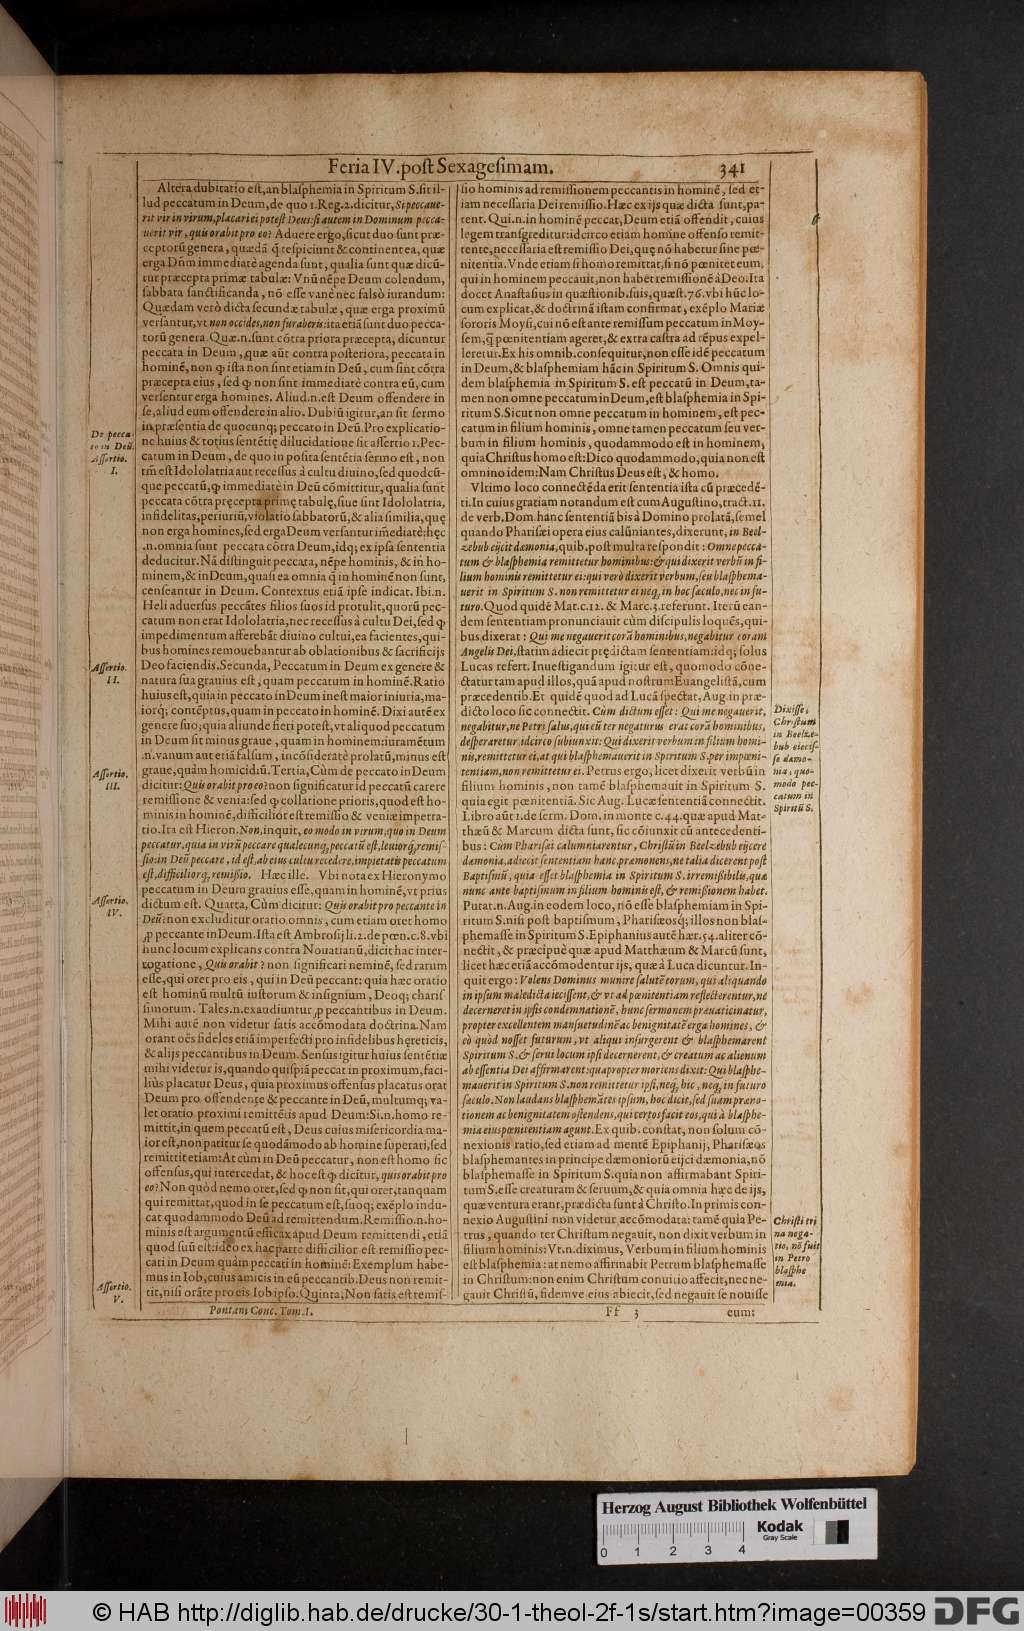 Feria IV. post Sexagesimam. 341
Altera dubitatio est, an blasphemia in Spiritum S. sit il-
lud peccatum in Deum, de quo 1. Reg. 2. dicitur, Si peccaue-
rit vir in virum, placari ei potest Deus: si autem in Dominum pecca-
uerit vir, quis orabit pro eo? Aduere ergo, sicut duo sunt præ-
ceptorũ genera, quædã q̃ respiciunt & continent ea, quæ
erga Dñm immediatè agenda sunt, qualia sunt quæ dicũ-
tur præcepta primæ tabulæ: Vnũ nẽpe Deum colendum,
sabbata sanctificanda, nõ esse vanè nec falsò iurandum:
Quædam verò dicta secundæ tabulæ, quæ erga proximũ
versantur, vt non occides, non furaberis: ita etiã sunt duo pecca-
torũ genera. Quæ.n. sunt cõtra priora præcepta, dicuntur
peccata in Deum, quæ aũt contra posteriora, peccata in
hominẽ, non ꝙ ista non sint etiam in Deũ, cum sint cõtra
præcepta eius, sed ꝙ non sint immediatè contra eũ, cum
versentur erga homines. Aliud.n. est Deum offendere in
se, aliud eum offendere in alio. Dubiũ igitur, an sit sermo
in præsentia de quocunq; peccato in Deũ. Pro explicatio-
ne huius & totius sentẽtiæ dilucidatione sit assertio 1. Pec-
catum in Deum, de quo in posita sentẽtia sermo est, non
tm̃ est Idololatria aut recessus à cultu diuino, sed quodcũ-
que peccatũ, ꝙ immediatè in Deũ cõmittitur, qualia sunt
peccata cõtra pręcepta primę tabulę, siue sint Idololatria,
infidelitas, periuriũ, violatio sabbatorũ, & alia similia, quę
non erga homines, sed erga Deum versantur im̃ediatè: hęc
.n. omnia sunt peccata cõtra Deum, idq; ex ipsa sententia
deducitur. Nã distinguit peccata, nẽpe hominis, & in ho-
minem, & in Deum, quasi ea omnia q̃ in hominẽ non sunt,
censeantur in Deum. Contextus etiã ipse indicat. Ibi.n.
Heli aduersus peccãtes filios suos id protulit, quorũ pec-
catum non erat Idololatria, nec recessus à cultu Dei, sed ꝙ
impedimentum afferebãt diuino cultui, ea facientes, qui-
bus homines remouebantur ab oblationibus & sacrificijs
Deo faciendis. Secunda, Peccatum in Deum ex genere &
natura sua grauius est, quam peccatum in hominẽ. Ratio
huius est, quia in peccato in Deum inest maior iniuria, ma-
iorq; contẽptus, quam in peccato in hominẽ. Dixi autẽ ex
genere suo; quia aliunde fieri potest, vt aliquod peccatum
in Deum sit minus graue, quam in hominem: iuramẽtum
.n. vanum aut etiã falsum, incõsideratè prolatũ, minus est
graue, quàm homicidiũ. Tertia, Cùm de peccato in Deum
dicitur: Quis orabit pro eo? non significatur id peccatũ carere
remissione & venia: sed ꝙ collatione prioris, quod est ho-
minis in hominẽ, difficilior est remissio & veniæ impetra-
tio. Ita est Hieron. Non, inquit, eo modo in virum, quo in Deum
peccatur, quia in virũ peccare qualecunq; peccatũ est, leuiorq; remis-
sio: in Deũ peccare, id est, ab eius cultu recedere, impietatis peccatum
est, difficiliorq; remissio. Hæc ille. Vbi nota ex Hieronymo
peccatum in Deum grauius esse, quam in hominẽ, vt prius
dictum est. Quarta, Cùm dicitur: Quis orabit pro peccante in
Deũ? non excluditur oratio omnis, cum etiam oret homo
ꝓ peccante in Deum. Ista est Ambrosij li. 2. de pœn. c. 8. vbi
hunc locum explicans contra Nouatianũ, dicit hac inter-
rogatione, Quis orabit? non significari neminẽ, sed rarum
esse, qui oret pro eis, qui in Deũ peccant: quia hæc oratio
est hominũ multũ iustorum & insignium, Deoq; charis
simorum. Tales.n. exaudiuntur ꝓ peccantibus in Deum.
Mihi autẽ non videtur satis accõmodata doctrina. Nam
orant oẽs fideles etiã imperfecti pro infidelibus hęreticis,
& alijs peccantibus in Deum. Sensus igitur huius sentẽtiæ
mihi videtur is, quando quispiã peccat in proximum, faci-
liùs placatur Deus, quia proximus offensus placatus orat
Deum pro offendente & peccante in Deũ, multumq; va-
let oratio proximi remittẽtis apud Deum: Si.n. homo re-
mittit, in quem peccatũ est, Deus cuius misericordia ma-
ior est, non patitur se quodãmodo ab homine superari, sed
remittit etiam: At cùm in Deũ peccatur, non est homo sic
offensus, qui intercedat, & hoc est ꝙ dicitur, quis orabit pro
eo? Non quòd nemo oret, sed ꝙ non sit, qui oret, tanquam
qui remittat, quod in se peccatum est, suoq; exẽplo indu-
cat quodammodo Deũ ad remittendum. Remissio.n. ho-
minis est argumentũ efficax apud Deum remittendi, etiã
quod suũ est: ideo ex hac parte difficilior est remissio pec-
cati in Deum quàm peccati in hominẽ: Exemplum habe-
mus in Iob, cuius amicis in eũ peccantib. Deus non remit-
tit, nisi orãte pro eis Iob ipso. Quinta, Non satis est remis-
Pontani Conc. Tom. I.
De pecca-
to in Deũ.
Assertio.
I.
Assertio.
II.
Assertio.
III.
Assertio.
IV.
Assertio.
V.
sio hominis ad remissionem peccantis in hominẽ, sed et-
iam necessaria Dei remissio. Hæc ex ijs quæ dicta sunt, pa-
tent. Qui.n. in hominẽ peccat, Deum etiã offendit, cuius
legem transgreditur: idcirco etiam homine offenso remit-
tente, necessaria est remissio Dei, quę nõ habetur sine pœ-
nitentia. Vnde etiam si homo remittat, si nõ pœnitet eum,
qui in hominem peccauit, non habet remissionẽ à Deo. Ita
docet Anastasius in quæstionib. suis, quæst. 76. vbi hũc lo-
cum explicat, & doctrinã istam confirmat, exẽplo Mariæ
sororis Moysi, cui nõ est ante remissum peccatum in Moy-
sem, q̃ pœnitentiam ageret, & extra castra ad tẽpus expel-
leretur. Ex his omnib. consequitur, non esse idẽ peccatum
in Deum, & blasphemiam hãc in Spiritum S. Omnis qui-
dem blasphemia in Spiritum S. est peccatũ in Deum, ta-
men non omne peccatum in Deum, est blasphemia in Spi-
ritum S. Sicut non omne peccatum in hominem, est pec-
catum in filium hominis, omne tamen peccatum seu ver-
bum in filium hominis, quodammodo est in hominem,
quia Christus homo est: Dico quodammodo, quia non est
omnino idem: Nam Christus Deus est, & homo.
Vltimo loco connectẽda erit sententia ista cũ præcedẽ-
ti. In cuius gratiam notandum est cum Augustino, tract. 11.
de verb. Dom. hanc sententiã bis à Domino prolatã, semel
quando Pharisæi opera eius calũniantes, dixerunt, in Beel-
zebub eijcit dæmonia, quib. post multa respondit: Omne pecca-
tum & blasphemia remittetur hominibus: & qui dixerit verbũ in fi-
lium hominis remittetur ei: qui verò dixerit verbum, seu blasphema-
uerit in Spiritum S. non remittetur ei neq; in hoc sæculo, nec in fu-
turo. Quod quidẽ Mat. c. 12. & Marc. 3. referunt. Iterũ ean-
dem sententiam pronunciauit cùm discipulis loquẽs, qui-
bus dixerat: Qui me negauerit corã hominibus, negabitur coram
Angelis Dei, statim adiecit prędictam sententiam: idq; solus
Lucas refert. Inuestigandum igitur est, quomodo cõne-
ctatur tam apud illos, quã apud nostrum Euangelistã, cum
præcedentib. Et quidẽ quod ad Lucã spectat, Aug. in præ-
dicto loco sic connectit. Cùm dictum esset: Qui me negauerit,
negabitur, ne Petri salus, qui eũ ter negaturus erat corã hominibus,
desperaretur. idcirco subiunxit: Qui dixerit verbum in filium homi-
nis, remittetur ei, at qui blasphemauerit in Spiritum S. per impœni-
tentiam, non remittetur ei. Petrus ergo, licet dixerit verbũ in
filium hominis, non tamẽ blasphemauit in Spiritum S.
quia egit pœnitentiã. Sic Aug. Lucæ sententiã connectit.
Libro aũt 1. de serm. Dom. in monte c. 44. quæ apud Mat-
thæũ & Marcum dicta sunt, sic cõiunxit cũ antecedenti-
bus: Cùm Pharisæi calumniarentur, Christũ in Beelzebub eijcere
dæmonia, adiecit sententiam hanc, præmonens, ne talia dicerent post
Baptismũ, quia esset blasphemia in Spiritum S. irremissibilis, quæ
nunc ante baptismum in filium hominis est, & remissionem habet.
Putat.n. Aug. in eodem loco, nõ esse blasphemiam in Spi-
ritum S. nisi post baptismum, Pharisæosq; illos non blas-
phemasse in Spiritum S. Epiphanius autẽ hær. 54. aliter cõ-
nectit, & præcipuè quæ apud Matthæum & Marcũ sunt,
licet hæc etiã accõmodentur ijs, quæ à Luca dicuntur. In-
quit ergo: Volens Dominus munire salutẽ eorum, qui aliquando
in ipsum maledicta iecissent, & vt ad pœnitentiam reflecterentur, ne
decerneret in ipsis condemnationẽ, hunc sermonem præuaticinatur,
propter excellentem mansuetudinẽ ac benignitatẽ erga homines, &
eò quòd nosset futurum, vt aliqui insurgerent & blasphemarent
Spiritum S. & serui locum ipsi decernerent, & creatum ac alienum
ab essentia Dei affirmarent: quapropter moriens dixit: Qui blasphe-
mauerit in Spiritum S. non remittetur ipsi, neq; hic, neq; in futuro
sæculo. Non laudans blasphemãtes ipsum, hoc dicit, sed suam præro-
tionem ac benignitatem ostendens, qui certos facit eos, qui à blasphe-
mia eius pœnitentiam agunt. Ex quib. constat, non solum cõ-
nexionis ratio, sed etiam ad mentẽ Epiphanij, Pharisæos
blasphemantes in principe dæmoniorũ eijci dæmonia, nõ
blasphemasse in Spiritum S. quia non affirmabant Spiri-
tum S. esse creaturam & seruum, & quia omnia hæc de ijs,
quæ ventura erant, prædicta sunt à Christo. In primis con-
nexio Augustini non videtur accõmodata: tamẽ quia Pe-
trus, quando ter Christum negauit, non dixit verbum in
filium hominis: Vt.n. diximus, Verbum in filium hominis
est blasphemia: at nemo affirmabit Petrum blasphemasse
in Christum: non enim Christum conuitio affecit, nec ne-
gauit Christũ, fidemve eius abiecit, sed negauit se nouisse
Ff 3 eum:
Dixisse,
Christum
in Beelze-
bub eiecis-
se dæmo-
nia, quo-
modo pec-
catum in
Spiritũ S.
Christi tri
na nega-
tio, nõ fuit
in Petro
blasphe
mia.
Herzog August Bibliothek Wolfenbüttel
0 1 2 3 4
Kodak
Gray Scale
© HAB http://diglib.hab.de/drucke/30-1-theol-2f-1s/start.htm?image=00359
DFG